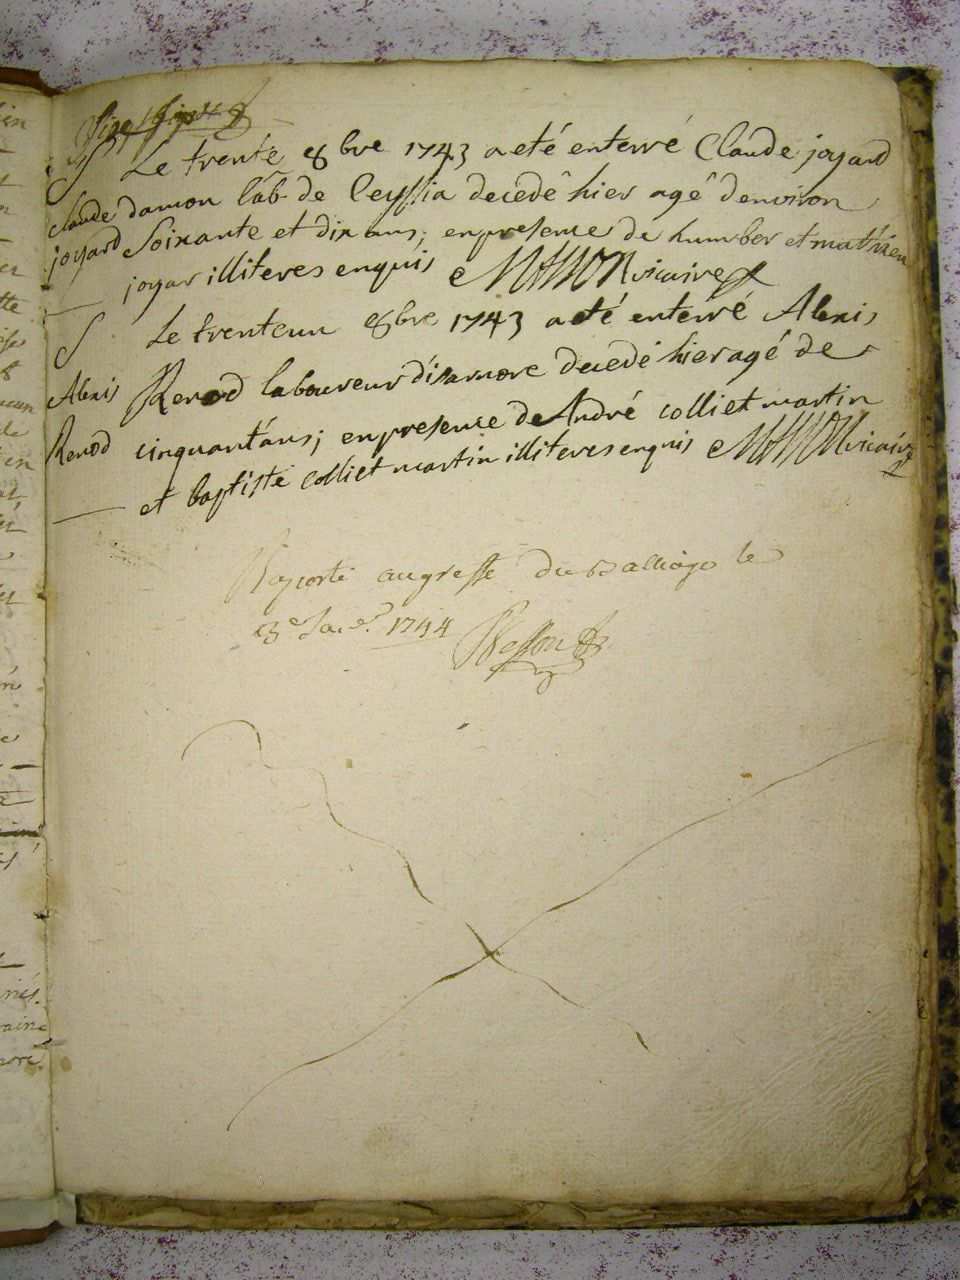 S Le trente 8bre 1743 a eté enterré Claude joyard
Claude damon lab. de Ceyssia decedé hier agé denviron
joyard Soixante et dix ans, en presence de humber et mathieu
joyar illiteres enquis vicaire
S Le trenteun 8bre 1743 a eté enterré Alexis
Alexis Renod laboureur disarnore decedé hier agé de
Renod cinquant'ans; en presence de André colliet martin
et baptiste colliet martin illiteres enquis vicaire
Raporté au greffe du Balliage le
3e Janer. 1744